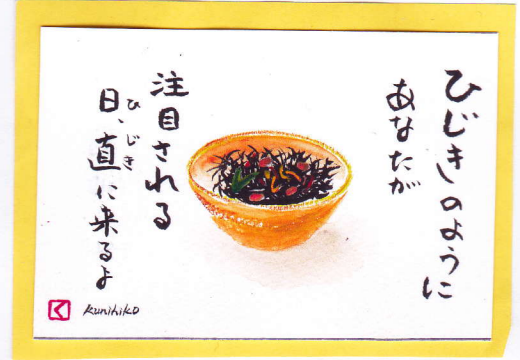 ひじきのように
あなたが
注目される
日、直に来るよ
ひ じき
く
Kunihiko